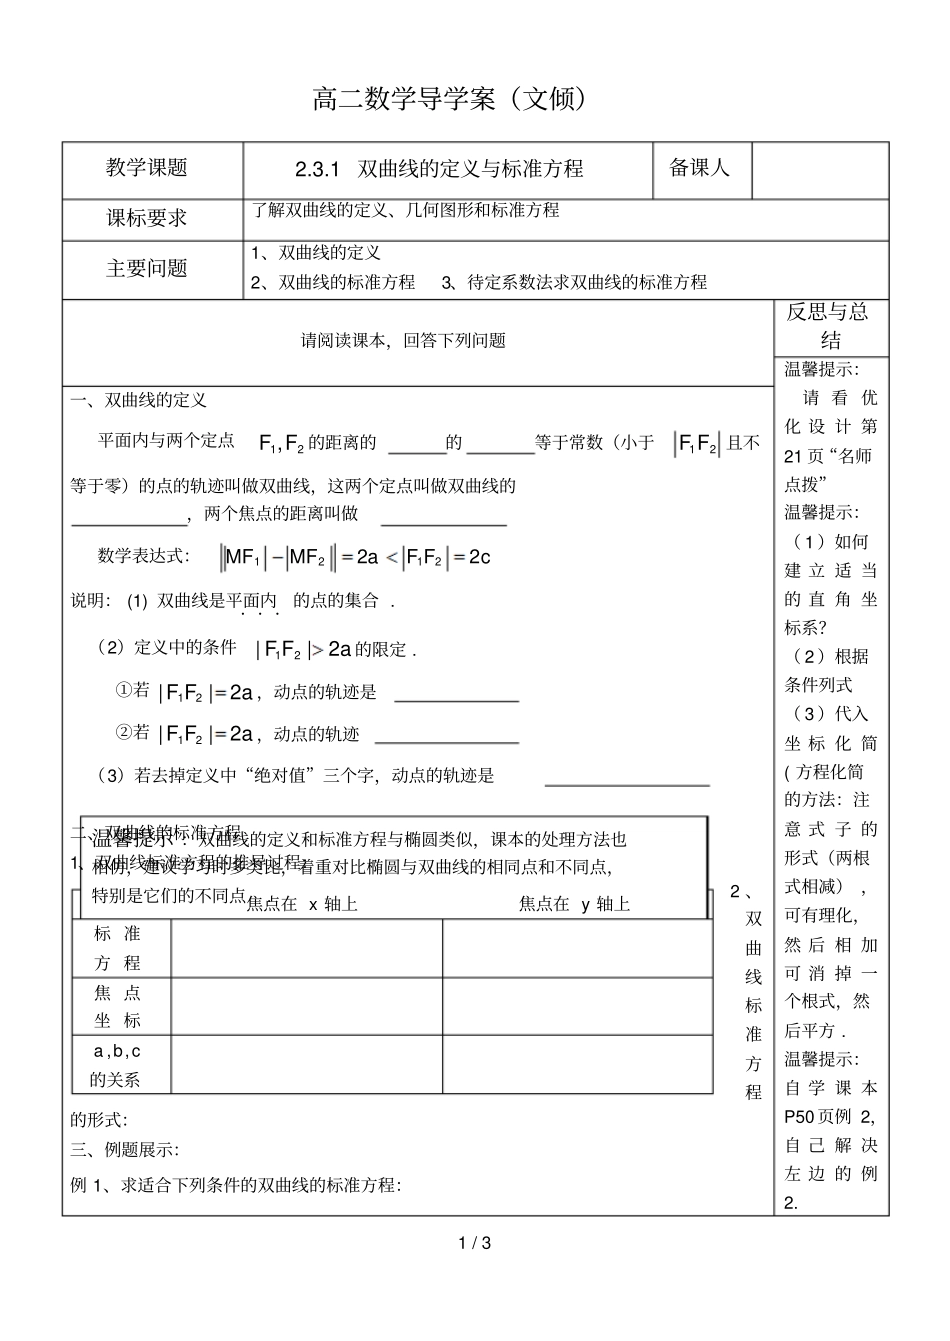 高二数学导学案（文倾）
教学课题 2.3.1 双曲线的定义与标准方程 备课人
课标要求 了解双曲线的定义、几何图形和标准方程
主要问题
1、双曲线的定义
2、双曲线的标准方程 3、待定系数法求双曲线的标准方程
请阅读课本，回答下列问题
一、双曲线的定义
平面内与两个定点 F₁,F₂ 的距离的______的______等于常数（小于 |F₁F₂| 且不
等于零）的点的轨迹叫做双曲线，这两个定点叫做双曲线的
______，两个焦点的距离叫做______
数学表达式： ||MF₁|－|MF₂||＝2a＜|F₁F₂|＝2c
说明：(1) 双曲线是平面内 的点的集合．
（2）定义中的条件 |F₁F₂|＞2a 的限定．
①若 |F₁F₂|＝2a，动点的轨迹是______
②若 |F₁F₂|＝2a，动点的轨迹______
（3）若去掉定义中“绝对值”三个字，动点的轨迹是______
二、双曲线的标准方程
温馨提示：双曲线的定义和标准方程与椭圆类似，课本的处理方法也
1、双曲线标准方程的推导过程：
相仿，建议学习时多类比，着重对比椭圆与双曲线的相同点和不同点，
特别是它们的不同点．
焦点在 x 轴上 焦点在 y 轴上
标 准
方 程
焦 点
坐 标
a,b,c
的关系
2、
双
曲
线
标
准
方
程
的形式：
三、例题展示：
例 1、求适合下列条件的双曲线的标准方程：
反思与总
结
温馨提示：
请 看 优
化 设 计 第
21 页 “名师
点拨”
温馨提示：
（1）如何
建 立 适 当
的 直 角 坐
标系？
（2）根据
条件列式
（3）代入
坐 标 化 简
( 方程化简
的方法：注
意 式 子 的
形式（两根
式相减），
可有理化，
然 后 相 加
可 消 掉 一
个根式，然
后平方．
温馨提示：
自 学 课 本
P50 页例 2，
自 己 解 决
左 边 的 例
2.
1 / 3